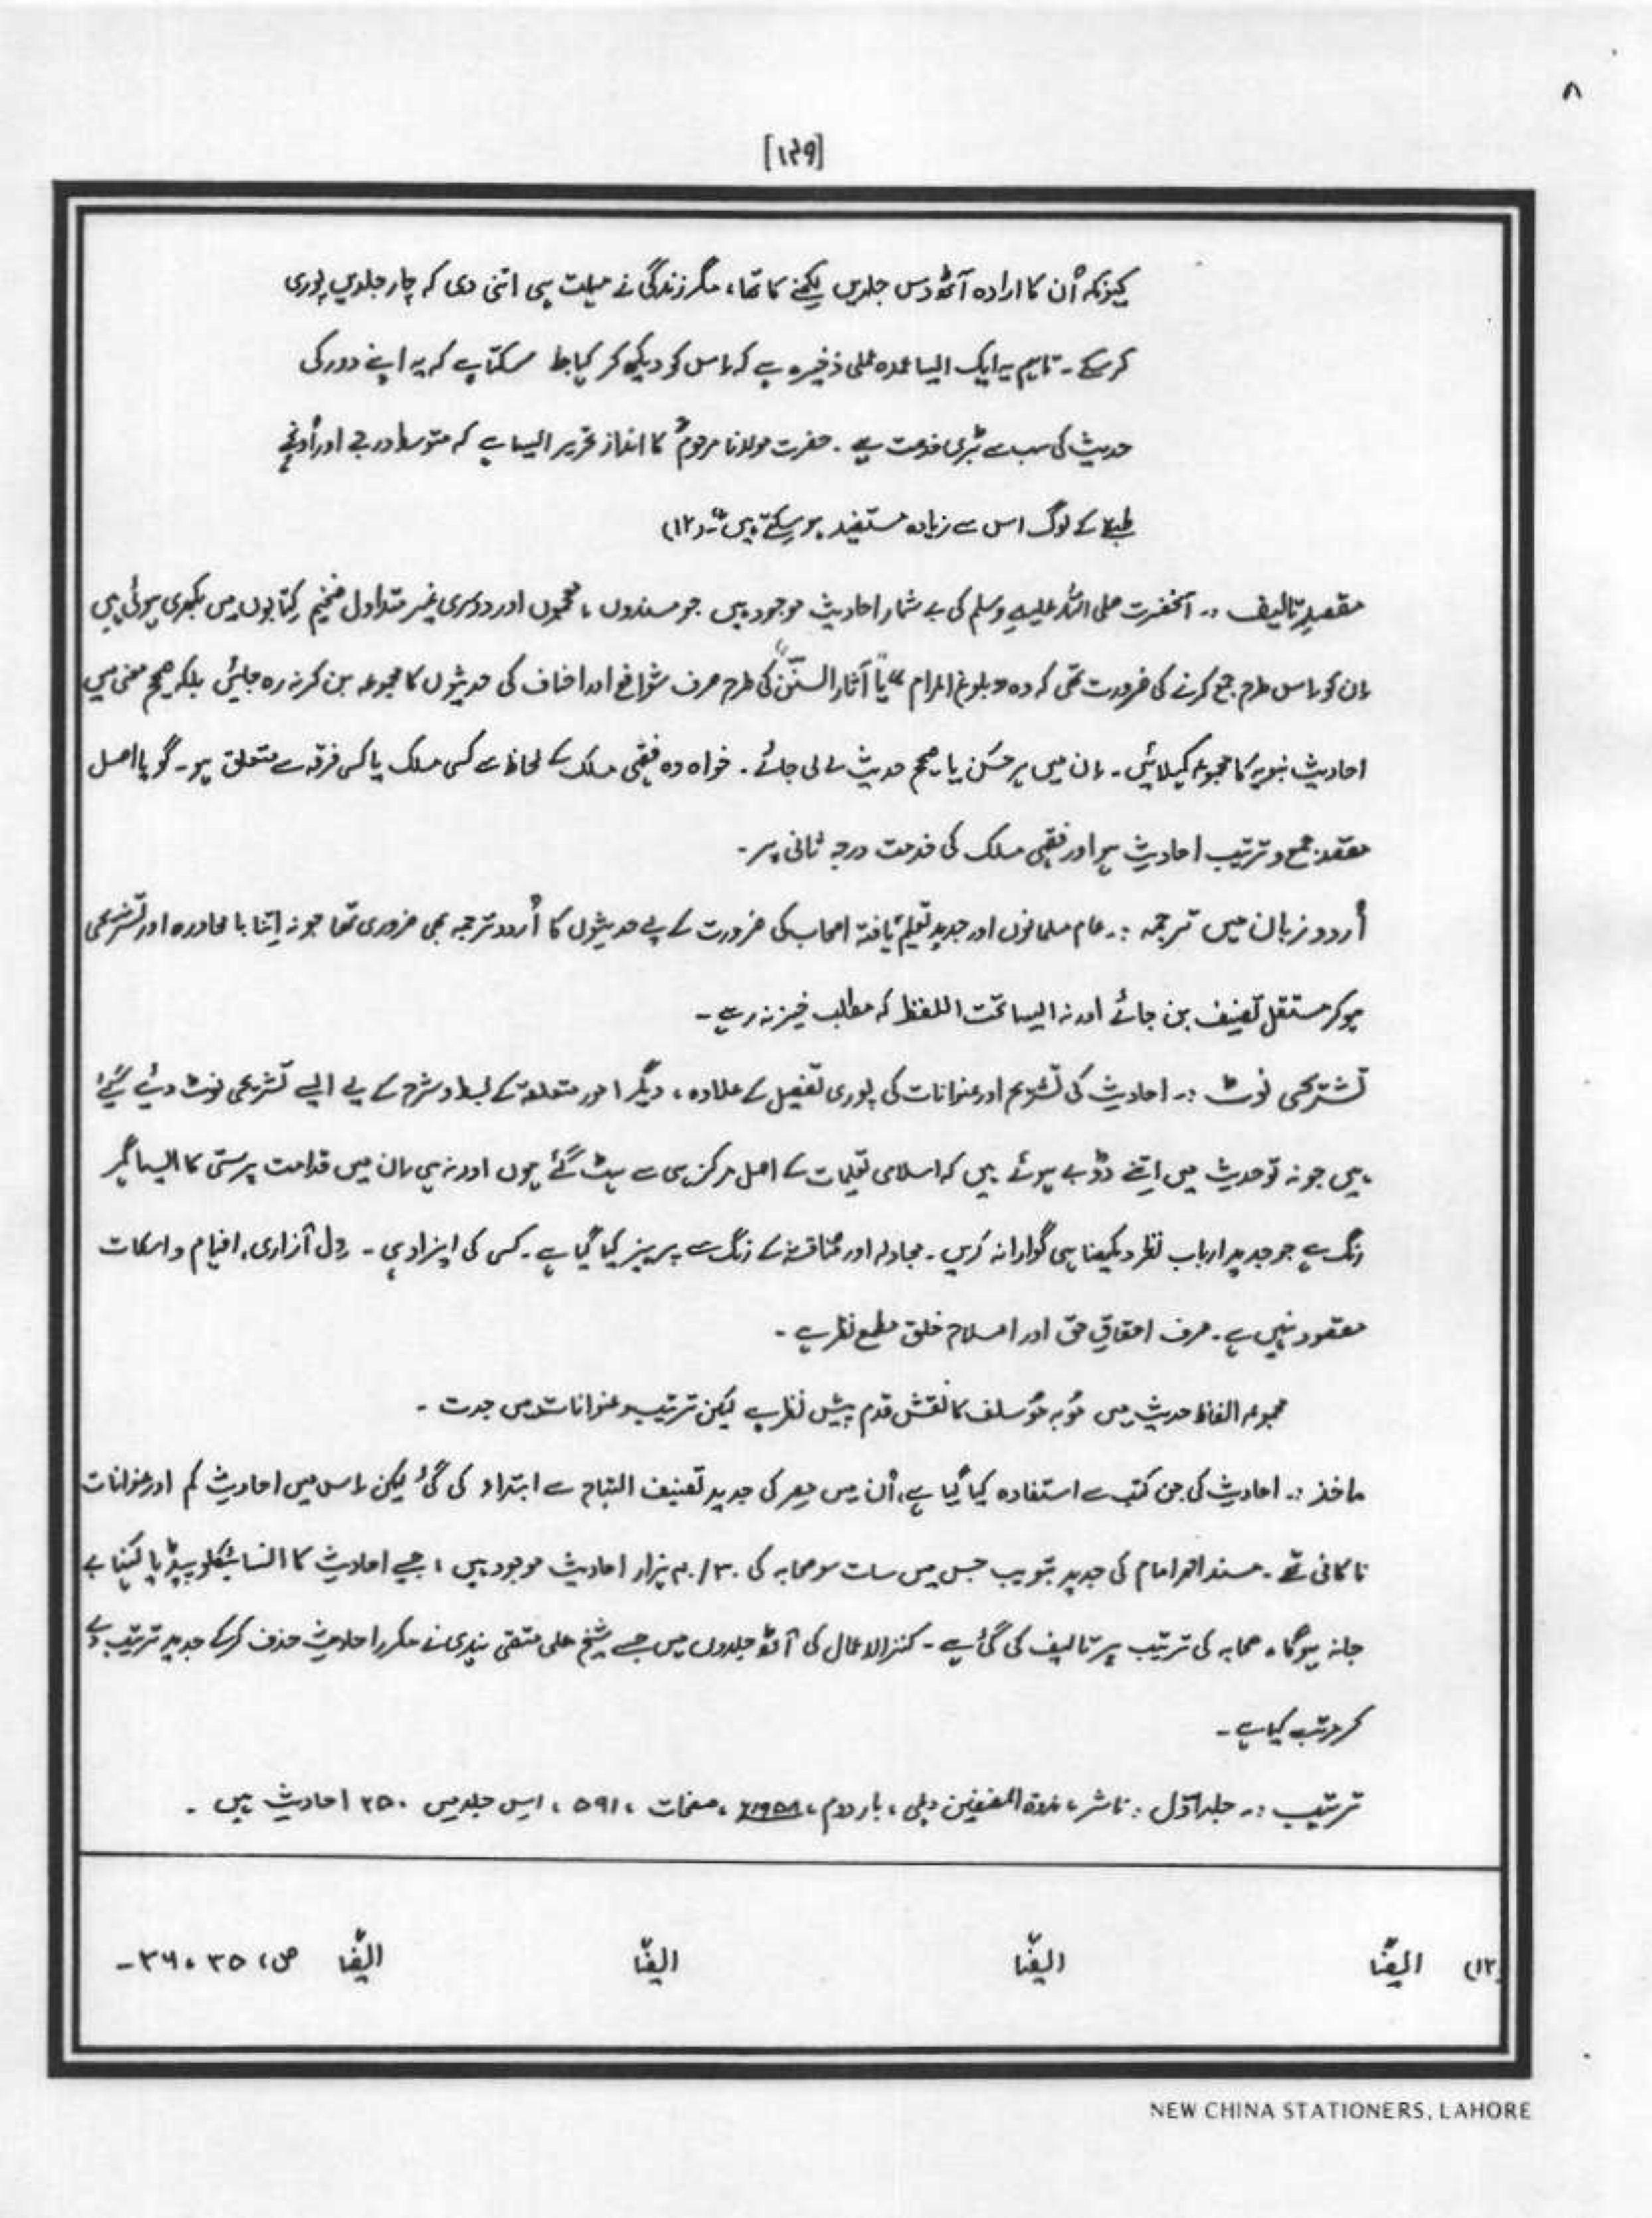 ۸
[۱۴۹]
کیونکہ اُن کا ارادہ آٹھ دس جلدیں لکھنے کا تھا، مگر زندگی نے مہلت ہی اتنی دی کہ چار جلدیں پوری
کر سکے۔ تاہم یہ ایک ایسا عمدہ علمی ذخیرہ ہے کہ اِس کو دیکھ کر کہا جا سکتا ہے کہ یہ اپنے دور کی
حدیث کی سب سے بڑی خدمت ہے۔ حضرت مولانا مرحومؒ کا انداز تحریر ایسا ہے کہ متوسط درجے اور اُونچے
طبقے کے لوگ اس سے زیادہ مستفید ہو سکتے ہیں"۔(۱۲)
مقصدِ تالیف :۔ آنحضرت صلی اللہ علیہ وسلم کی بے شمار احادیث موجود ہیں جو مسندوں، معجموں اور دوسری غیر متداول ضخیم کتابوں میں بکھری ہوئی ہیں
اِن کو اِس طرح جمع کرنے کی ضرورت تھی کہ وہ "بلوغ المرام" یا "آثار السنن" کی طرح صرف شوافع اور احناف کی حدیثوں کا مجموعہ بن کر نہ رہ جائیں بلکہ صحیح معنی میں
احادیث نبویہ کا مجموعہ کہلائیں۔ اِن میں ہر حسَن یا صحیح حدیث لے لی جائے۔ خواہ وہ فقہی مسلک کے لحاظ سے کسی مسلک یا کسی فرقہ سے متعلق ہو۔ گویا اصل
مقصد جمع و ترتیب احادیث ہو اور فقہی مسلک کی خدمت درجہ ثانی پر۔
اُردو زبان میں ترجمہ :۔ عام مسلمانوں اور جدید تعلیم یافتہ اصحاب کی ضرورت کے لیے حدیثوں کا اُردو ترجمہ بھی ضروری تھا جو نہ اِتنا با محاورہ اور تشریحی
ہو کر مستقل تصنیف بن جائے اور نہ ایسا تحت اللفظ کہ مطلب خیز نہ رہے۔
تشریحی نوٹ :۔ احادیث کی تشریح اور عنوانات کی پوری تفصیل کے علاوہ، دیگر امور متعلقہ کے بسط و شرح کے لیے ایسے تشریحی نوٹ دیئے گئے
ہیں جو نہ تو حدیث میں اتنے ڈوبے ہوئے ہیں کہ اسلامی تعلیمات کے اصل مرکز ہی سے ہٹ گئے ہوں اور نہ ہی اِن میں قدامت پرستی کا ایسا گہرا
رنگ ہے جو جدید ارباب نظر دیکھنا ہی گوارا نہ کریں۔ مجادلہ اور مناقشہ کے رنگ سے پرہیز کیا گیا ہے۔ کسی کی ایزا دہی۔ دِل آزاری، افہام و اسکات
مقصود نہیں ہے۔ صرف احقاقِ حق اور اصلاح خلق مطمح نظر ہے۔
مجموعہ الفاظ حدیث میں مُو بہ مُو سلف کا نقش قدم پیش نظر ہے لیکن ترتیب و عنوانات میں جدت۔
ماخذ :۔ احادیث کی جن کتب سے استفادہ کیا گیا ہے، اُن میں مصر کی جدید تصنیف التاج سے ابتداء کی گئی لیکن اِس میں احادیث کم اور عنوانات
ناکافی تھے۔ مسند احمد امام کی جدید تبویب جس میں سات سو صحابہ کی ۳۰/۴۰ ہزار احادیث موجود ہیں، جسے احادیث کا انسائیکلوپیڈیا کہنا بے
جانہ ہوگا، صحابہ کی ترتیب پر تالیف کی گئی ہے۔ کنز الاعمال کی آٹھ جلدوں میں جسے شیخ علی متقی ہندی نے مکرر احادیث حذف کرکے جدید ترتیب دے
کر مرتب کیا ہے۔
ترتیب :۔ جلد اوّل : ناشر، ندوۃ المصنفین دہلی، بار دوم، ۱۹۵۸ء، صفحات، ۵۹۱، اِس جلد میں ۲۵۰ احادیث ہیں۔
(۱۲) ایضًا ایضًا ایضًا ایضًا ص، ۳۵، ۳۶۔
NEW CHINA STATIONERS, LAHORE